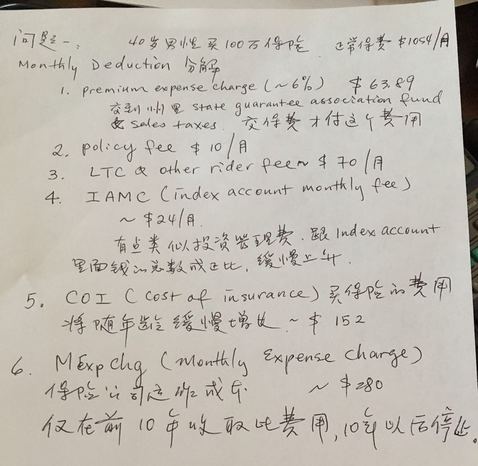 问题一: 40岁男性买100万保险 正常保费 $1054/月
Monthly Deduction 分解
1. premium expense charge (~6%) $63.89
交到州里 state guarantee association fund
& sales taxes. 交保费才付这个费用
2. policy fee $10/月
3. LTC & other rider fee ~ $70/月
4. IAMC (index account monthly fee)
~ $24/月.
有点类似投资管理费. 跟 Index account
里面钱的总数成正比, 缓慢上升.
5. COI (cost of insurance) 买保险的费用
将随年龄缓慢增加 ~ $152
6. MExpChg (Monthly Expense Charge)
保险公司运作成本 ~ $280
仅在前10年收取此费用, 10年以后停止。